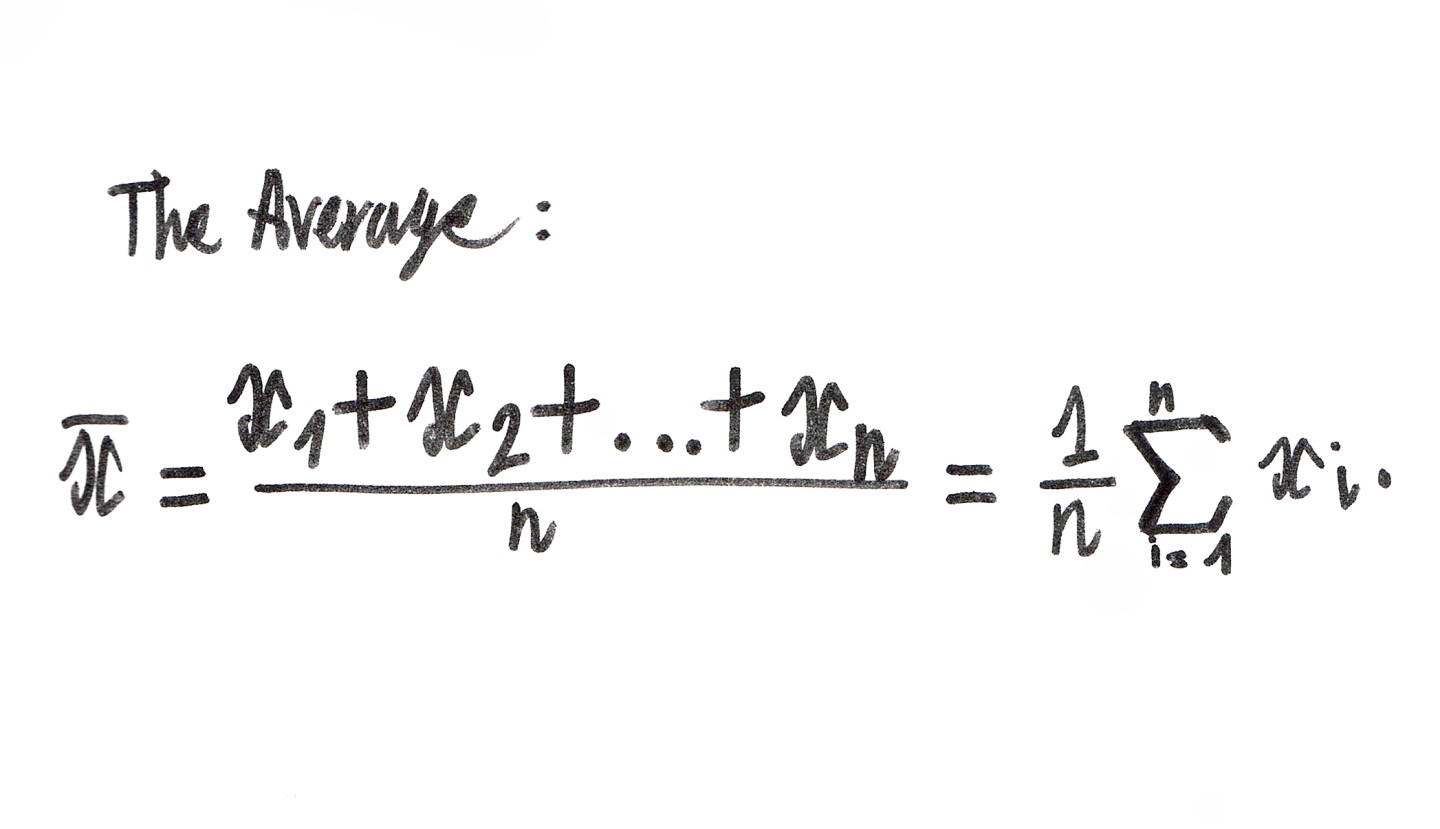 The Average:
x̄ = (x₁ + x₂ + ... + xₙ) / n = (1 / n) ∑ᵢ₌₁ⁿ xᵢ.